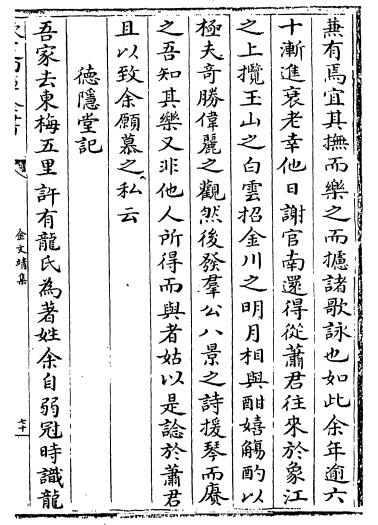 兼有焉宜其撫而樂之而攄諸歌詠也如此余年逾六
十漸進衰老幸他日謝官南還得從蕭君往來於象江
之上攬玉山之白雲招金川之明月相與酣嬉觴酌以
極夫奇勝偉麗之觀然後發羣公八景之詩援琴而賡
之吾知其樂又非他人所得而與者姑以是諗於蕭君
且以致余願慕之私云
德隱堂記
吾家去東梅五里許有龍氏為著姓余自弱冠時識龍
金文靖集